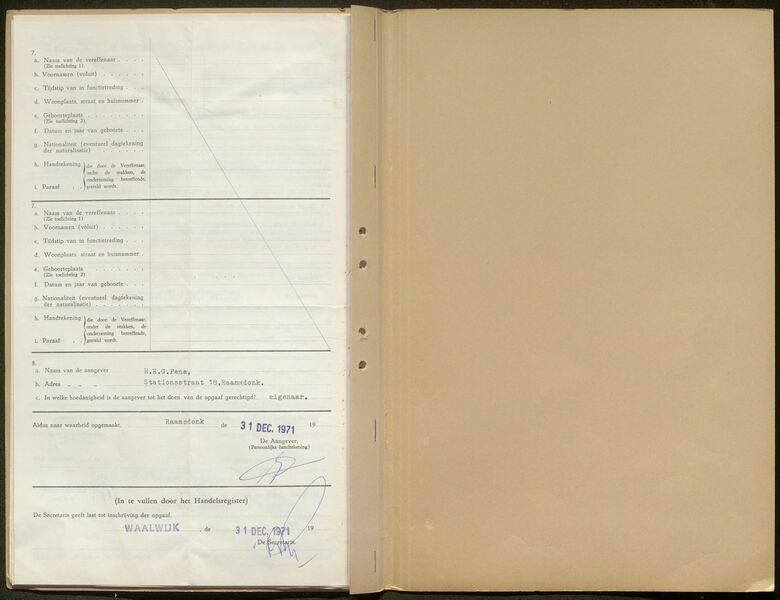 7.
a. Naam van de vereffenaar . . . .
(Zie toelichting 1).
b. Voornamen (voluit) . . . . . .
c. Tijdstip van in functietreding . . .
d. Woonplaats, straat en huisnummer .
e. Geboorteplaats . . . . . . .
(Zie toelichting 2).
f. Datum en jaar van geboorte . . .
g. Nationaliteit (eventueel dagtekening
der naturalisatie) . . . . . .
h. Handtekening
i. Paraaf . .
die door de Vereffenaar,
onder de stukken, de
onderneming betreffende,
gesteld wordt.
7.
a. Naam van de vereffenaar . . . .
(Zie toelichting 1).
b. Voornamen (voluit) . . . . . .
c. Tijdstip van in functietreding . . .
d. Woonplaats, straat en huisnummer .
e. Geboorteplaats . . . . . . .
(Zie toelichting 2).
f. Datum en jaar van geboorte . . .
g. Nationaliteit (eventueel dagtekening
der naturalisatie) . . . . . . .
h. Handtekening
i. Paraaf . .
die door de Vereffenaar,
onder de stukken, de
onderneming betreffende,
gesteld wordt.
8.
a. Naam van de aangever H.H.G.Pens,
b. Adres „ „ „ Stationsstraat 18,Raamsdonk.
c. In welke hoedanigheid is de aangever tot het doen van de opgaaf gerechtigd? eigenaar.
Aldus naar waarheid opgemaakt, Raamsdonk de 31 DEC. 1971 19
De Aangever.
(Persoonlijke handtekening)
(In te vullen door het Handelsregister)
De Secretaris geeft last tot inschrijving der opgaaf.
WAALWIJK , de 31 DEC. 1971 19
De Secretaris.